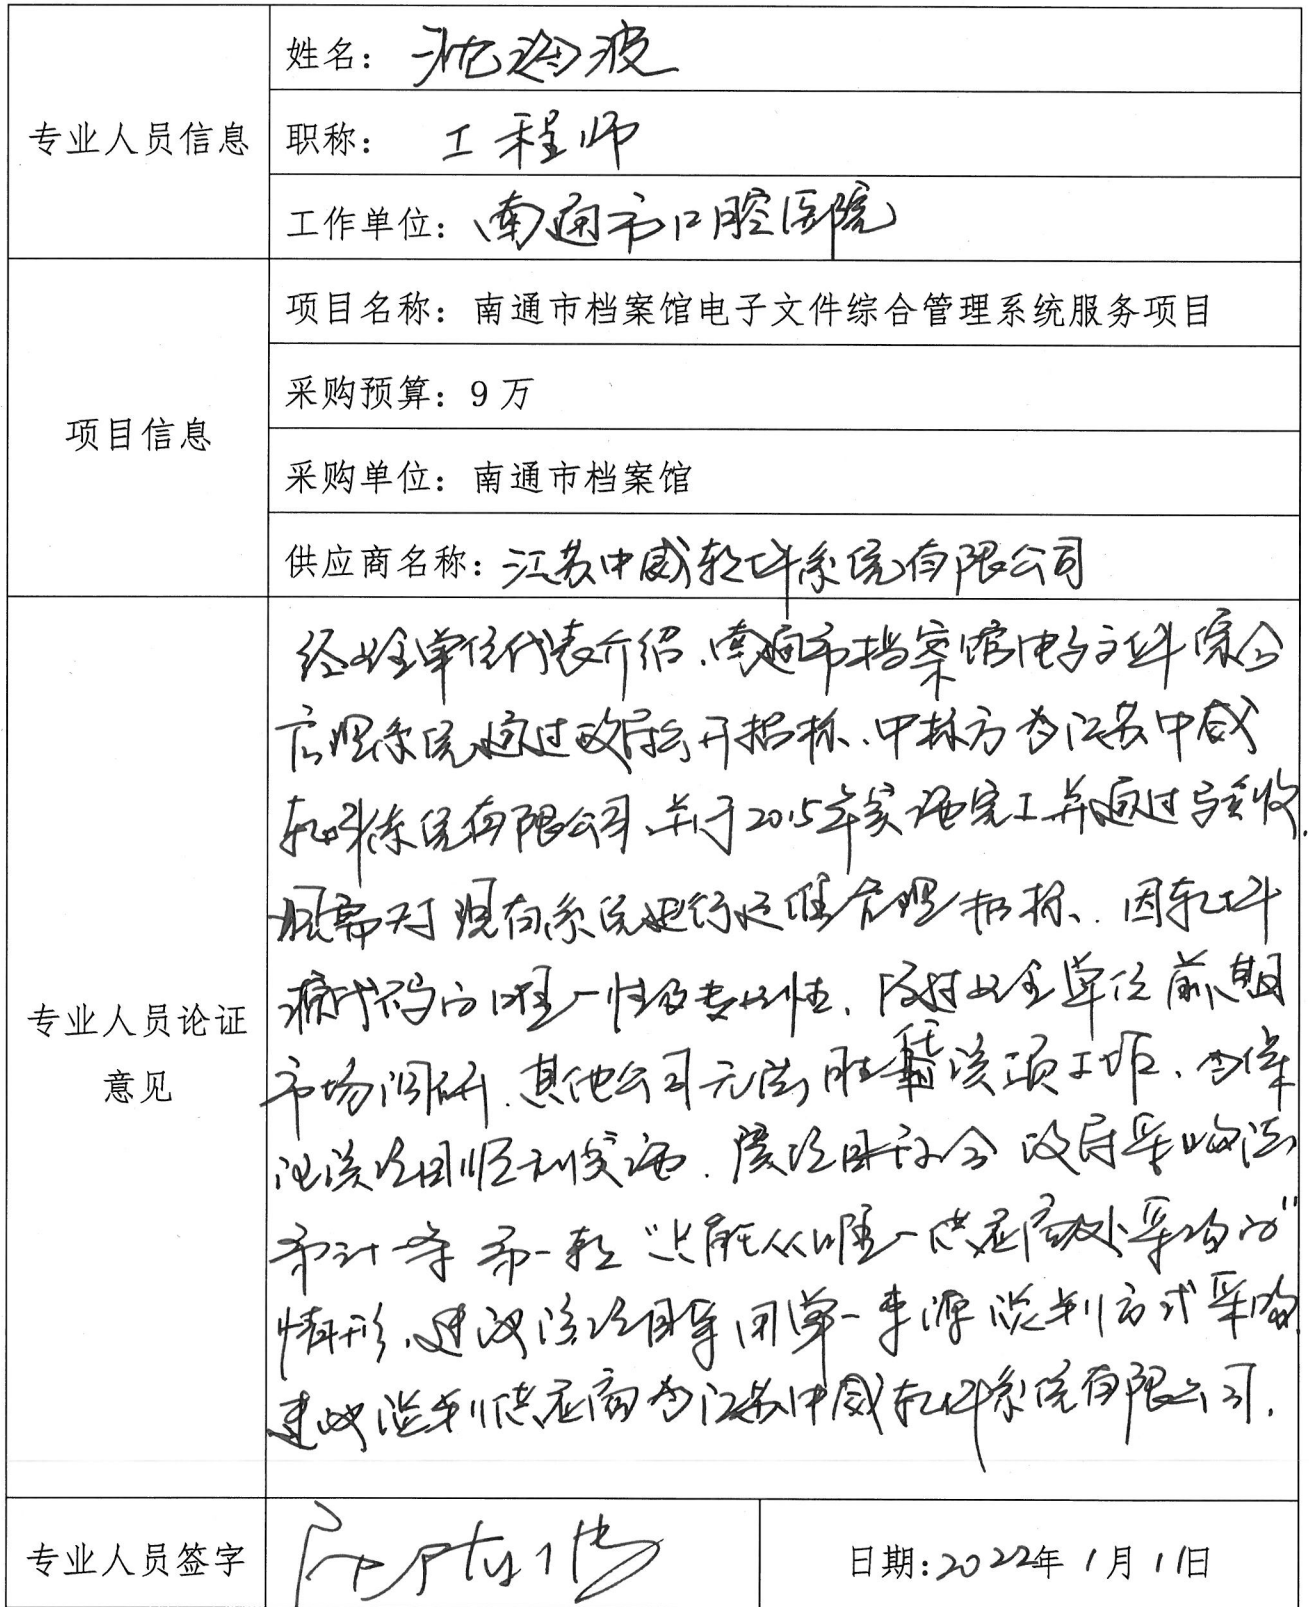 专业人员信息
姓名：沈海波
职称：工程师
工作单位：南通市口腔医院
项目信息
项目名称：南通市档案馆电子文件综合管理系统服务项目
采购预算：9万
采购单位：南通市档案馆
供应商名称：江苏中威软件系统有限公司
专业人员论证
意见
经业主单位代表介绍，南通市档案馆电子文件综合
管理系统通过政府公开招标，中标方为江苏中威
软件系统有限公司，并于2015年实施完工并通过验收，
现需对现有系统进行运维管理招标，因软件
源代码的唯一性及专业性，经过业主单位前期
市场调研，其他公司无法胜任该项工作，为保
证该项目顺利实施，该项目符合政府采购法
第三十一条第一款“只能从唯一供应商处采购的”
情形，建议该项目采用单一来源谈判方式采购，
建议谈判供应商为江苏中威软件系统有限公司。
专业人员签字
日期：2022年1月11日